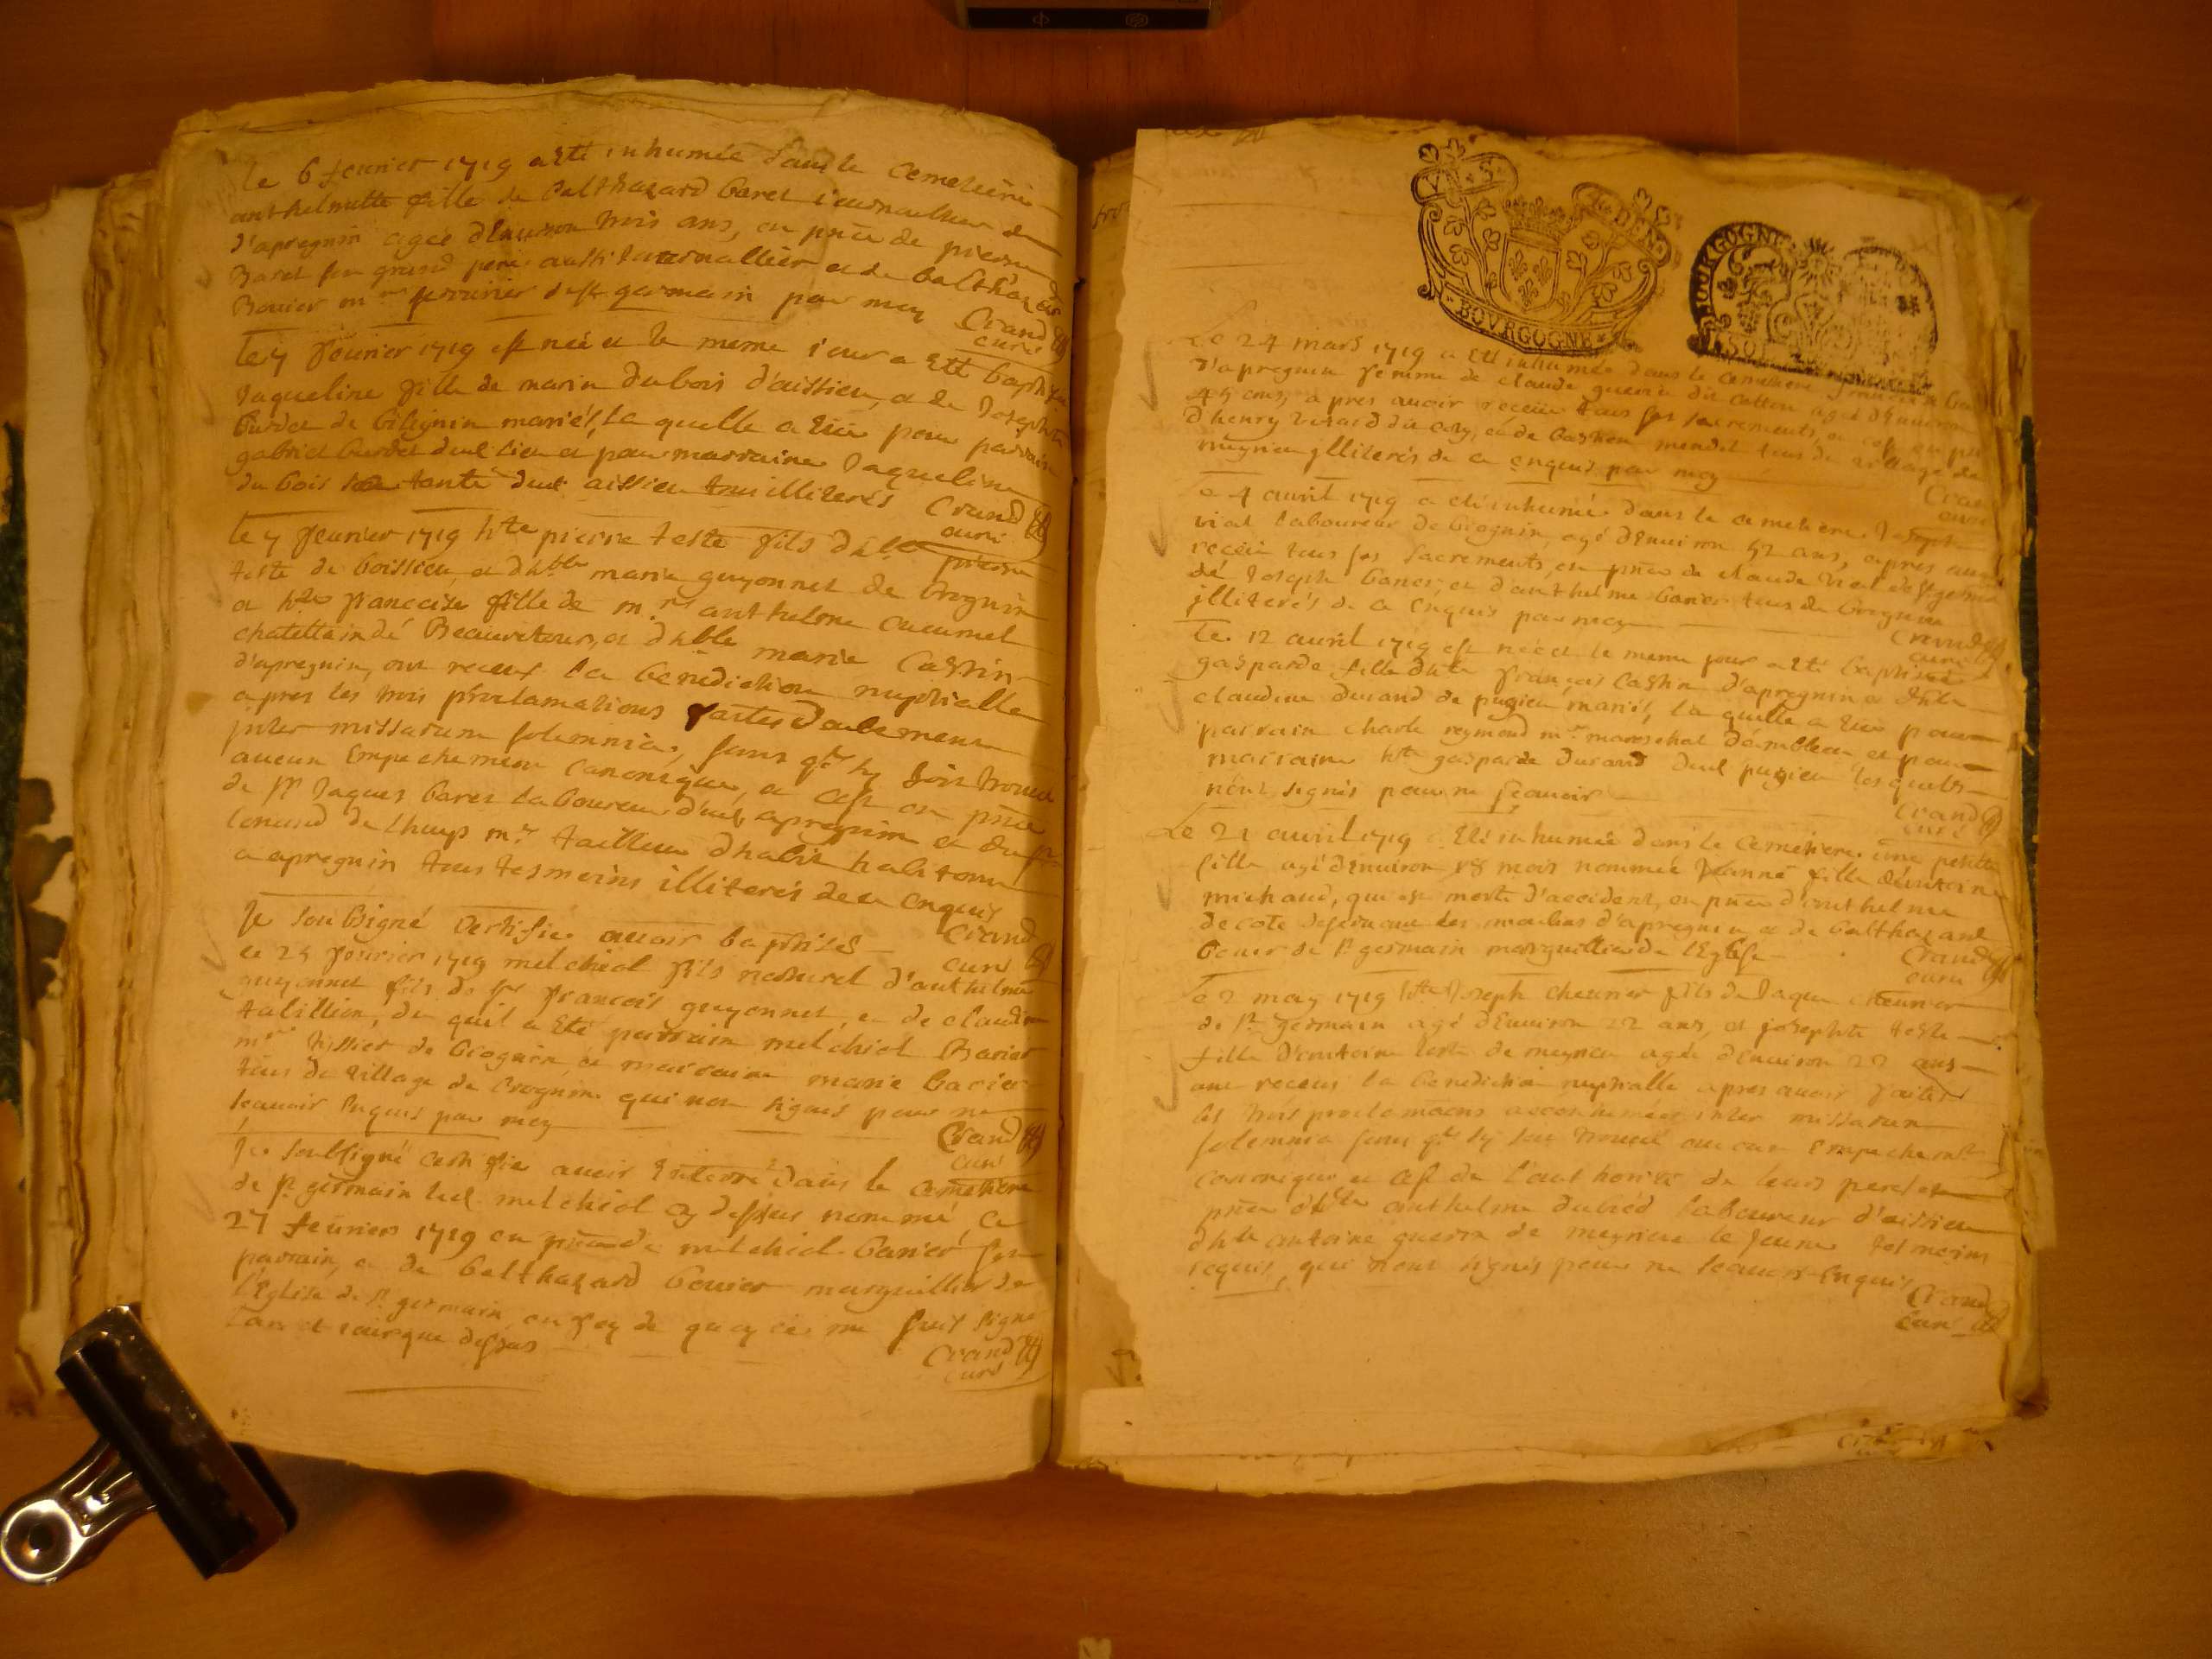 le 6 feurier 1719 a esté inhumée dans le cemetiere
anthelmette fille de balthazard baret iournallier
d'apregnin agée d'enuiron trois ans, en pñce de pierre
Baret son grand pere aussi iournallier et de balthazar
Bouier m.re serrurier de st germain par moy Crand
curé
le 7 feurier 1719 est née et le meme iour a esté baptisée
Jaqueline fille de marin dubois d'aissieu, et de Josephte
burdet de bilignin mariés, la quelle a eu pour parrain
gabriel burdet dud. lieu et pour marraine Jaqueline
du bois tante dud. aissieu illiterés Crand
curé
le 7 feurier 1719 h.te pierre teste fils d'h.ble pierre
teste de boissieu, et d'h.ble marie guyonnet de brognin
et h.te francoise fille de m.re anthelme cucumel
chatellain de Beauretour, et d'h.ble marie Castin
d'apregnin, ont receu la benediction nuptialle
apres les trois proclamations faites deubement
inter missarum solemnia, sans q.t hy soit trouué
aucun Empechement canonique, et cest en pñce
de s.r Jaques baret laboureur dud. apregnin et du s.r
m.re tailleur d'habit habitant
a apregnin tous tesmoins illiterés de ce enquis
Crand
curé
Je soubsigné certifie auoir baptisés
le 25 feurier 1719 melchiol fils naturel d'anthelme
guyonnet fils de s.r francois guyonnet, et de claudine
tabillion, du quil a esté parrain melchiol Barier
m.re tissier de brognin, et marraine marie barier
tous du village de brognin qui non signés pour ne
scauoir Enquis par moy
Crand
curé
Je soubsigné certifie auoir Enterré dans le cemetiere
de s.t germain led. melchiol cy dessus nommé, ce
27 feurier 1719 en pñce de melchiol barier son
parrain, et de balthazard bouier marguillier de
l'Eglise de s.t germain, en foy de quoy ie me suis signé
l'an et iour que dessus
Crand
curé
BOVRGOGNE
BOURGOGNE
Le 24 mars 1719 a esté inhumée dans le cemetiere
d'apregnin femme de claude guerin dit cotton agée d'enuiron
45 ans, apres auoir receu tous ses sacrements, et cest en pñce
d'henry berard et de bastien mendet tous du village de
meyrieu illiterés de ce enquis par moy
Crand
curé
le 4 auril 1719 a esté inhumé dans le cemetiere Joseph
vial laboureur de brognin, agé d'enuiron 52 ans, apres auoir
receu tous ses sacrements, en pñce de claude vial de st germain
de Joseph barier, et d'anthelme barier tous de brognin
illiterés de ce enquis par moy
Crand
curé
le 12 auril 1719 est née et le meme jour a esté baptisée
gasparde fille d'h.te françois Castin d'apregnin et d'h.te
claudine durand de pugieu mariés, la quelle a eu pour
parrain charle reymond m.re mareschal d'ambleon et pour
marraine h.te gasparde durand dud. pugieu lesquels
n'ont signés pour ne scauoir
Crand
curé
Le 21 auril 1719 a esté inhumée dans le cemetiere une petite
fille agée d'enuiron 18 mois nommée Jeanne fille d'antoine
michaud, qui est morte d'accident, en pñce d'anthelme
decote des moulins d'apregnin et de balthazard
bouier de s.t germain marguillier de l'Eglise
Crand
curé
le 2 may 1719 Joseph cheurier fils de Jaque cheurier
de s.t germain agé d'enuiron 22 ans, et josephte teste
fille d'antoine teste de meyrieu agée d'enuiron 22 ans
ont receus la benediction nuptialle apres auoir faites
les trois proclamations accoutumées inter missarum
solemnia sans q.t hy soit trouué aucun Empechem.t
canonique et cest de l'authorité de leurs peres
pñce d'h.ble anthelme dubied laboureur d'aissieu
d'h.ble antoine guerin de meyrieu le jeune tesmoins
requis, qui n'ont signés pour ne scauoir Enquis
Crand
curé